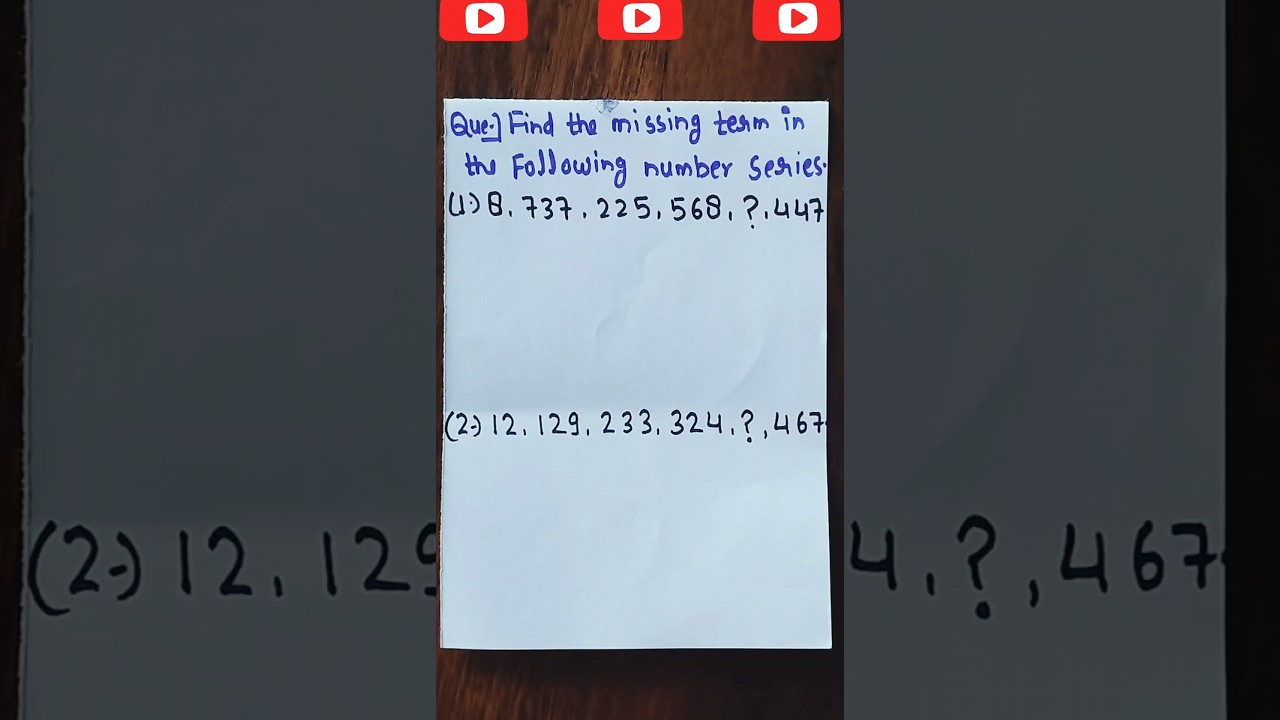 Que.] Find the missing term in
the Following number series.
(1.) 8, 737, 225, 568, ?, 447
(2.) 12, 129, 233, 324, ?, 467.
(2.) 12, 129
4, ?, 467.